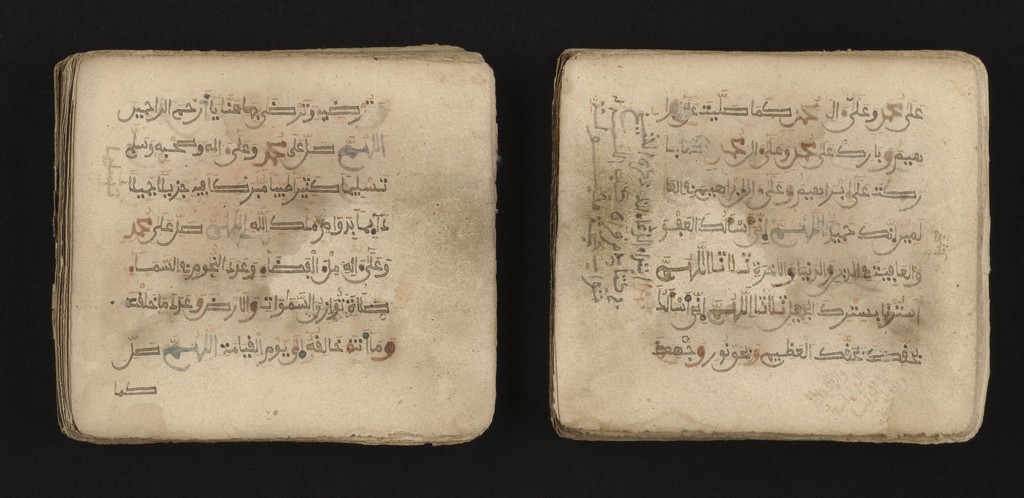 على محمد وعلى ال محمد كما صليت على ابرا
هيم وبارك على محمد وعلى ال محمد كما با
ركت على ابراهيم وعلى ال ابراهيم في العا
لمين انك حميد اللهم اني اسألك العفو
مجيد
والعافية في الدين والدنيا والاخرة ثلاثا اللهم
استرنا بسترك الجميل ثلاثا اللهم اني اسألك
بحقك العظيم وبحق نور وجهك
ترضيه وترضى بها عنا يا أرحم الراحمين
اللهم صل على محمد وعلى اله وصحبه وسلم
تسليما كثيرا طيبا مبركا فيه جزيلا جميلا
دائما بدوام ملك الله اللهم صل على محمد
وعلى اله ملأ الفضاء وعدد النجوم في السماء
صلاة توازن السموات والارض وعدد ما خلقت
وما أنت خالقه الى يوم القيامة اللهم صل
كما